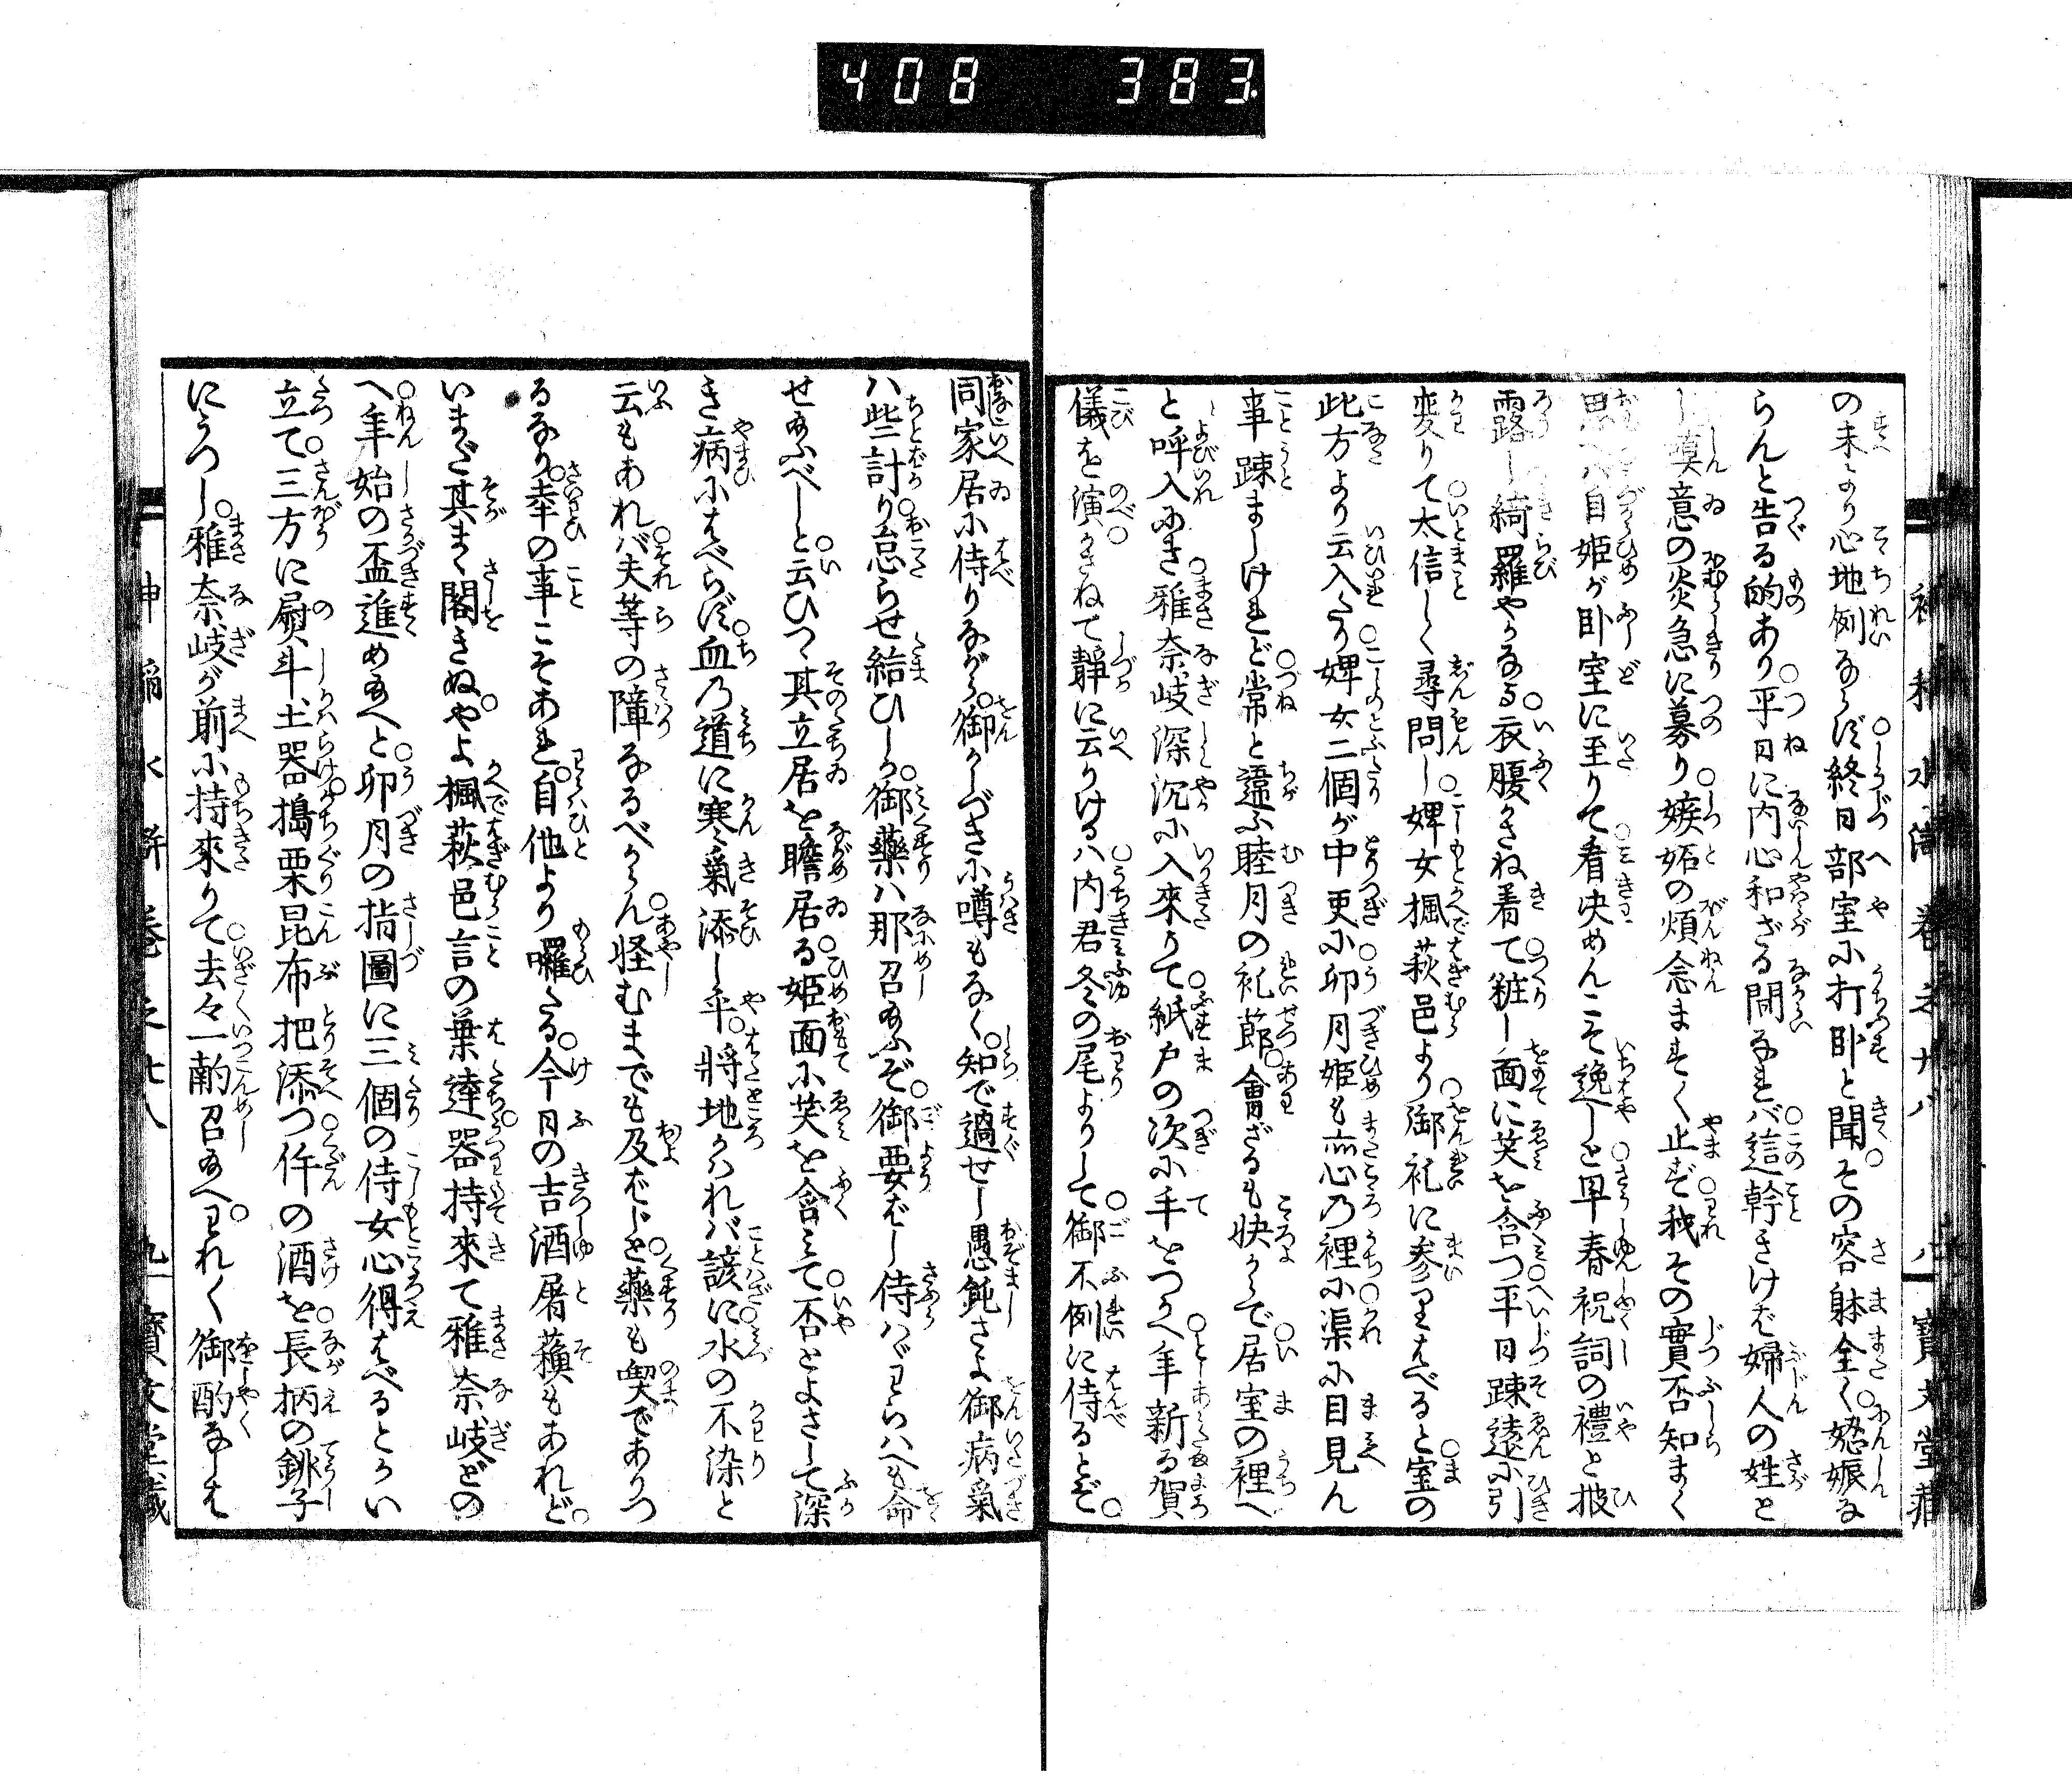 408 383
の末より心地例ならず終日部室に打臥と聞。その容躰全く妊娠な
らんと告る的あり。平日に内心和ざる間なれバ。這幹きけバ婦人の姓と
し。嗔意の炎急に募り。嫉妬の煩念ますく止ず。我その實否知まく
思へバ自姫が臥室に至りて。看决めんこそ逸しと。早春祝詞の禮と披
露し綺羅やかなる。衣腹かさね着て。粧し面に笑を含つ。平日踈遠に引
変りて。太信しく尋問し。婢女楓萩邑より。御礼に参りはべると。室の
此方より云入たり。婢女二個が中更に。卯月姫も亦心の裡に。渠に目見ん
事踈ましけれど。常と違ふ睦月の礼節。會ざるも快からで。居室の裡へ
と呼入にき。雅奈岐深沉に入來りて。紙戸の次に手をつかへ。年新る賀
儀を演。かさねて靜に云りけるハ。内君冬の尾よりして。御不例に侍るとぞ。
同家居に侍りながら。御かしづきに噂もなく。知で過せし愚鈍さよ。御病氣
ハ些計り。怠らせ給ひしか。御藥ハ那召給ふぞ。御要ばし侍ハゞ。われらへも命
せ給ふべしと。云ひつゝ其立居を瞻居る。姫面に笑を含て。否とよさして深
き病にはべらず。血の道に寒氣添し乎。將地かハれバ諺に。水の不染と
云もあれバ。夫等の障なるべからん。怪むまでも及ばじと。藥も喫でありつ
るなり。幸の事こそあれ。自他より囉たる。今日の吉酒屠蘓もあれど。
いまだ其まゝ閣きぬ。やよ楓萩邑言の葉達。器持來て雅奈岐どの
へ。年始の盃進め給へと。卯月の指圖に三個の侍女心得はべるとかい
立て。三方に熨斗土器。搗栗昆布把添つ。件の酒を。長柄の銚子
にうつし。雅奈岐が前に持來りて。去々一献召給へ。われく御酌なしは
寶文堂藏